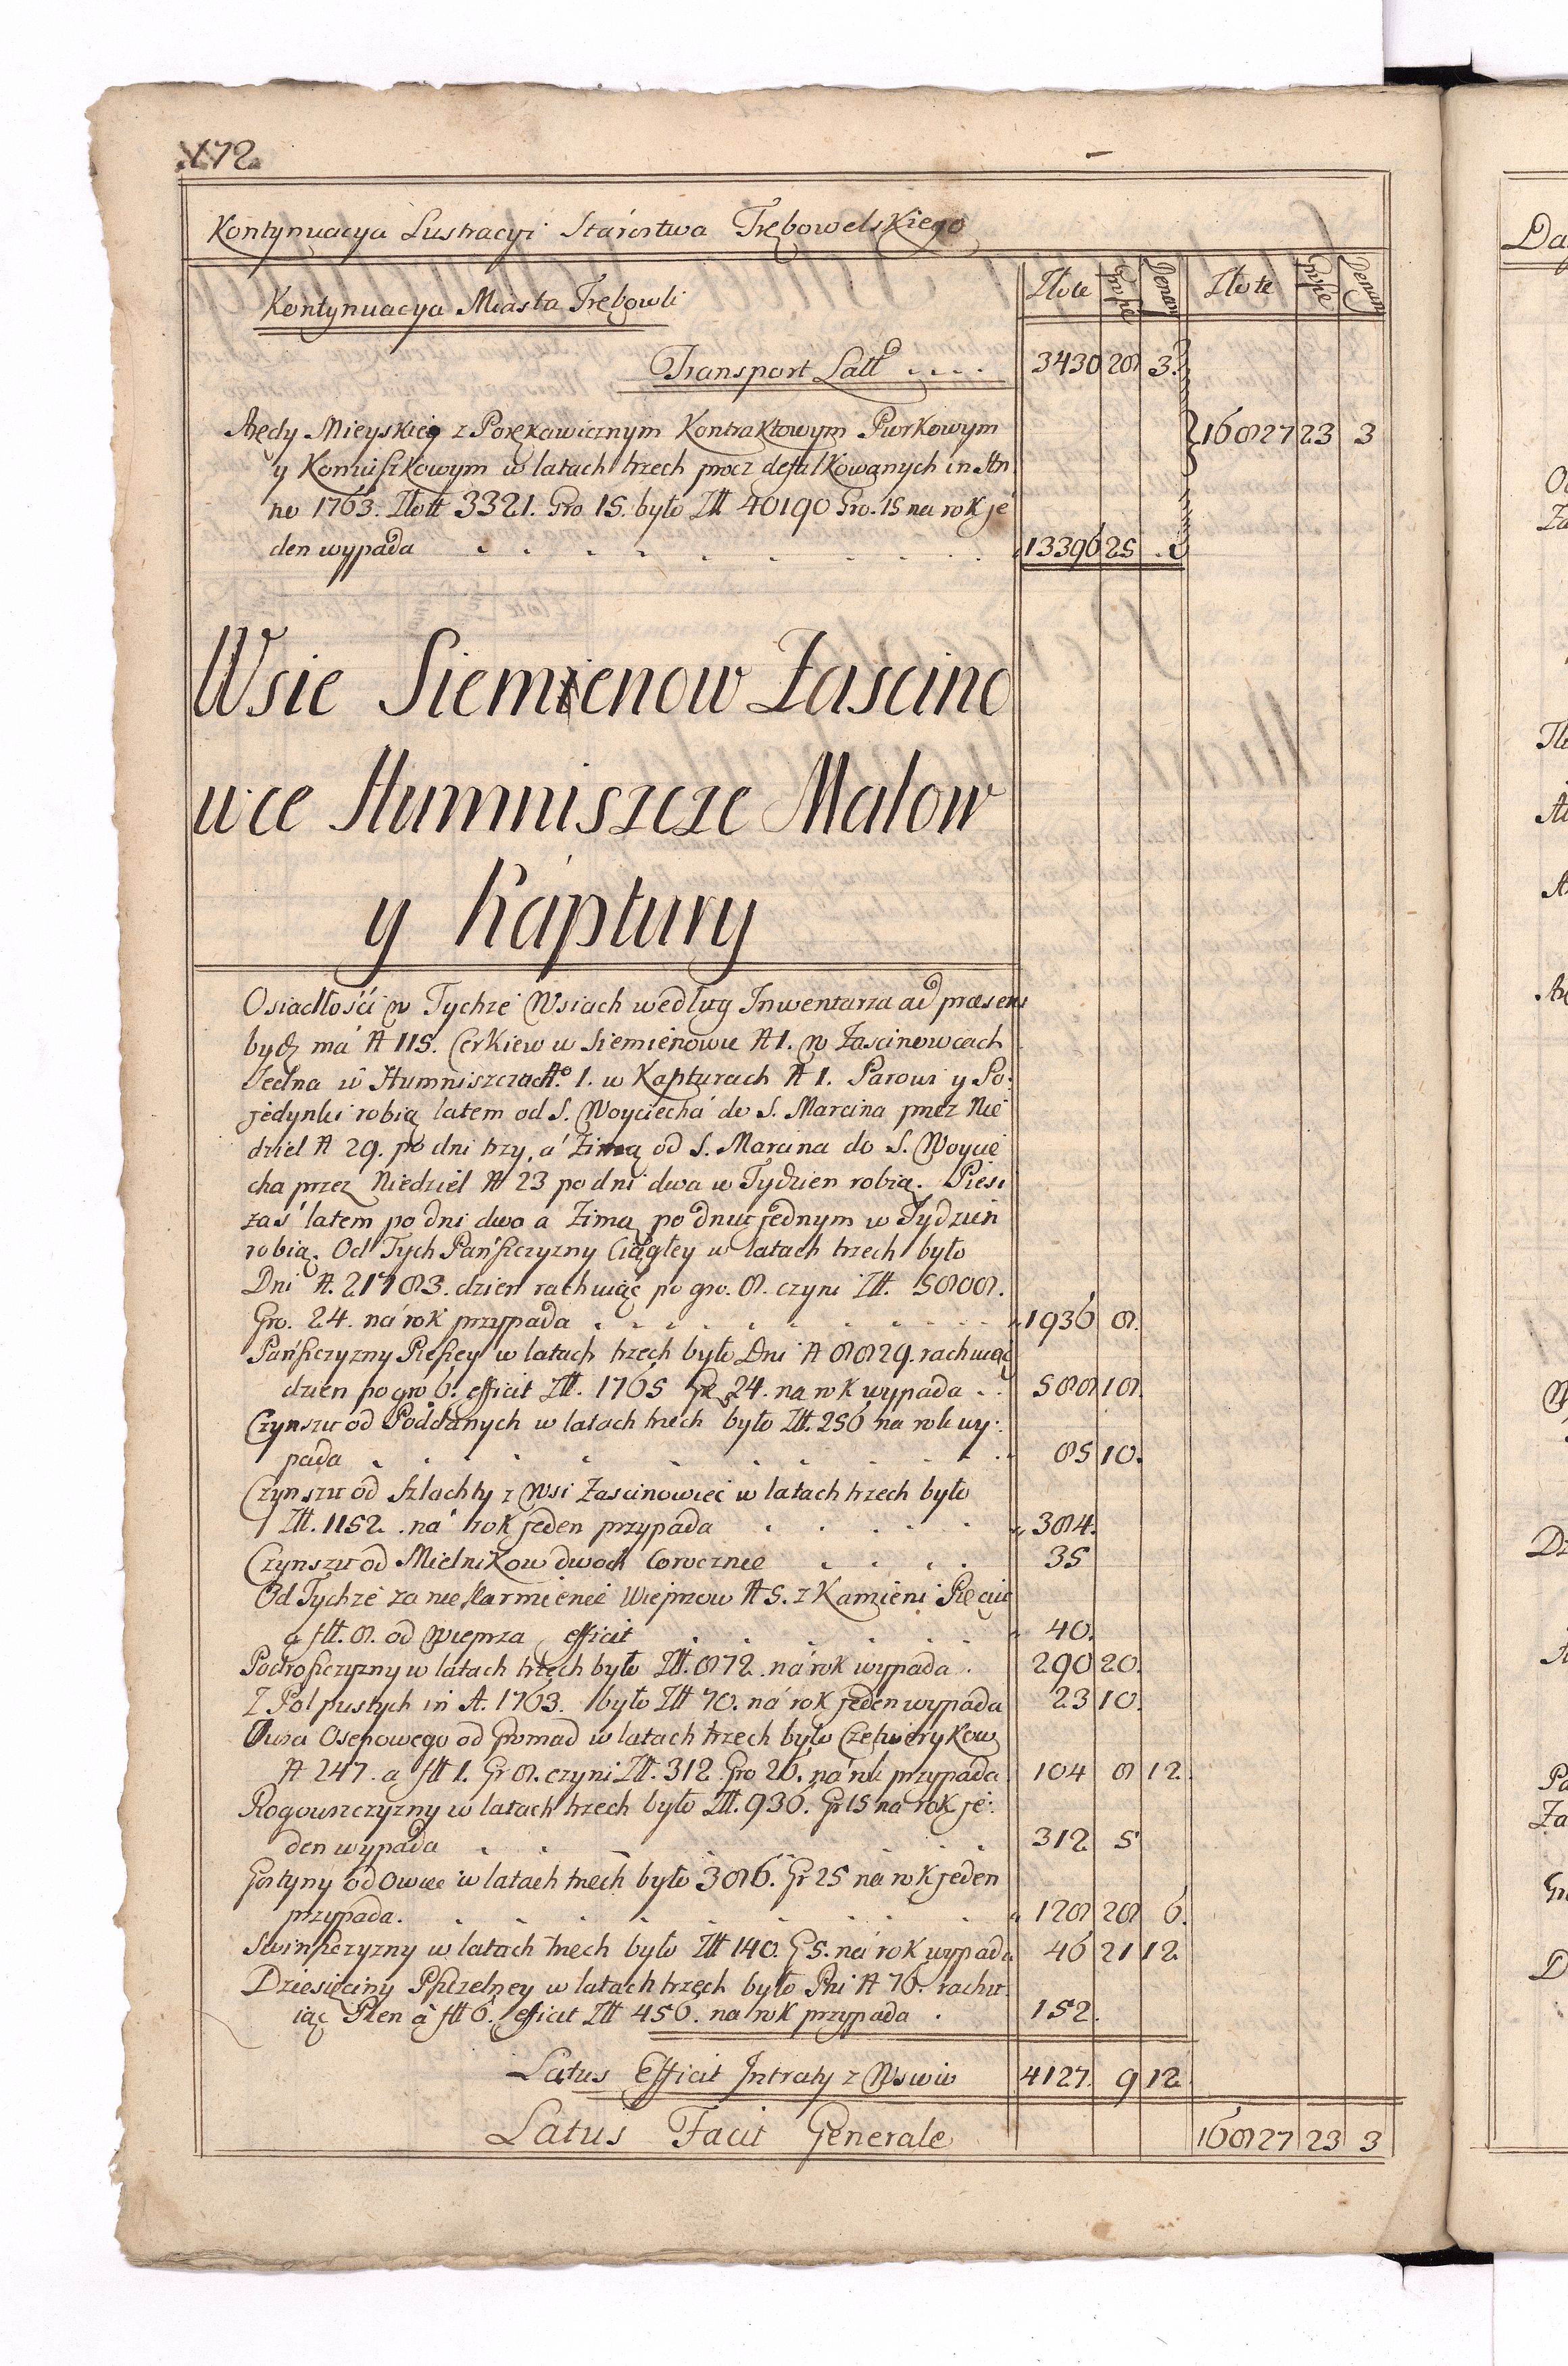 172.
Kontynuacya Lustracyi Starostwa Trębowelskiego
Kontynuacya Miasta Trębowli
Złote Grosze Denar Złote Grosze Denary
Transport Latt .... 3430 28 3.
Arędy Mieyskiey z Porękawicznym Kontraktowym Piorkowym 16827 23 3
y Konuiszkowym w latach trzech procz defalkowanych in An
no 1763. Złott 3321. Gro. 15. było Ztt 40190 Gro. 15 na rok je
den wypada 13396 25
Wsie Siemienow Zascino
wce Humniszcze Malow
y Kaptury
Osiadłości w Tychże Wsiach według Inwentarza ad præsens
bydź má N 115. Cerkiew w Siemienowie N 1. w Zascinowcach
Jedna w Humniszczach No. 1. w Kapturach N 1. Parowi y Po:
jedynki robią latem od S. Woyciecha do S. Marcina przez Nie
dziel N 29. po dni trzy, a Zimą od S. Marcina do S. Woycie
cha przez Niedziel N 23 po dni dwa w Tydzien robią. Piesi
zaś latem po dni dwa a Zimą po dniu jednym w Tydzien
robią. Od Tych Pańszczyzny Ciągłey w latach trzech było
Dni N. 21783. dzien rachuiąc po gro. 8. czyni Ztt. 5808.
Gro. 24. ná rok przypada 1936 8.
Pańszczyzny Pieszey w latach trzech było Dni N 8829. rachuiąc
dzien po gro 6. efficit Ztt. 1765 Gr. 24. na rok wypada .. 588 18.
Czynszu od Poddanych w latach trzech było Ztt. 256 na rok wy:
pada 85 10.
Czynszu od Szlachty z Wsi Zascinowiec w latach trzech było
Ztt. 1152. ná rok jeden przypada 384.
Czynszu od Mielnikow dwoch Corocznie 35
Od Tychże za nie karmienie Wieprzow N 5. z Kamieni Pięciu
a ftt. 8. od Wieprza efficit 40.
Podroszczyzny w latach trzech było Ztt. 872. ná rok wypada . 290 20.
Z Pol pustych in A. 1763. było Ztt 70. ná rok jeden wypada 23 10.
Owsa Osepowego od Gromad w latach trzech było Czetwerykow
N 247. a ftt 1. Gr 8. czyni Ztt. 312 Gro 26. ná rok przypada 104 8 12.
Rogowszczyzny w latach trzech było Ztt. 936. Gr 15 na rok je:
den wypada 312 5
Gostyny od Owiec w latach trzech było 386. Gr 25 na rok jeden
przypada. 128 28 6.
Swinszczyzny w latach trzech było Ztt 140. G 5. ná rok wypada 46 21 12.
Dziesięciny Pszczelney w latach trzech było Pni N 76. rachu:
iąc Pien á ftt 6. efficit Ztt 456. na rok przypada . 152.
Latus Efficit Intraty z Wsiów 4127. 9 12.
Latus Facit Generale 16827 23 3